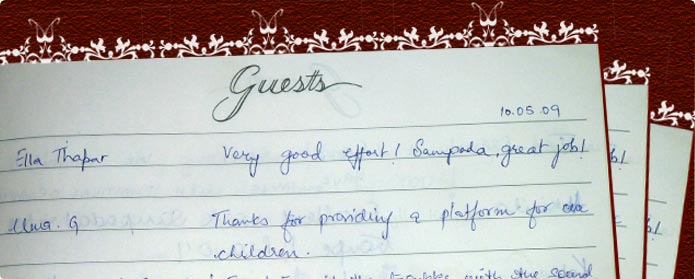 Guests
10.05.09
Ella Thapar Very good effort! Sampada, great job!
Uma. G Thanks for providing a platform for our
children.
with the sound